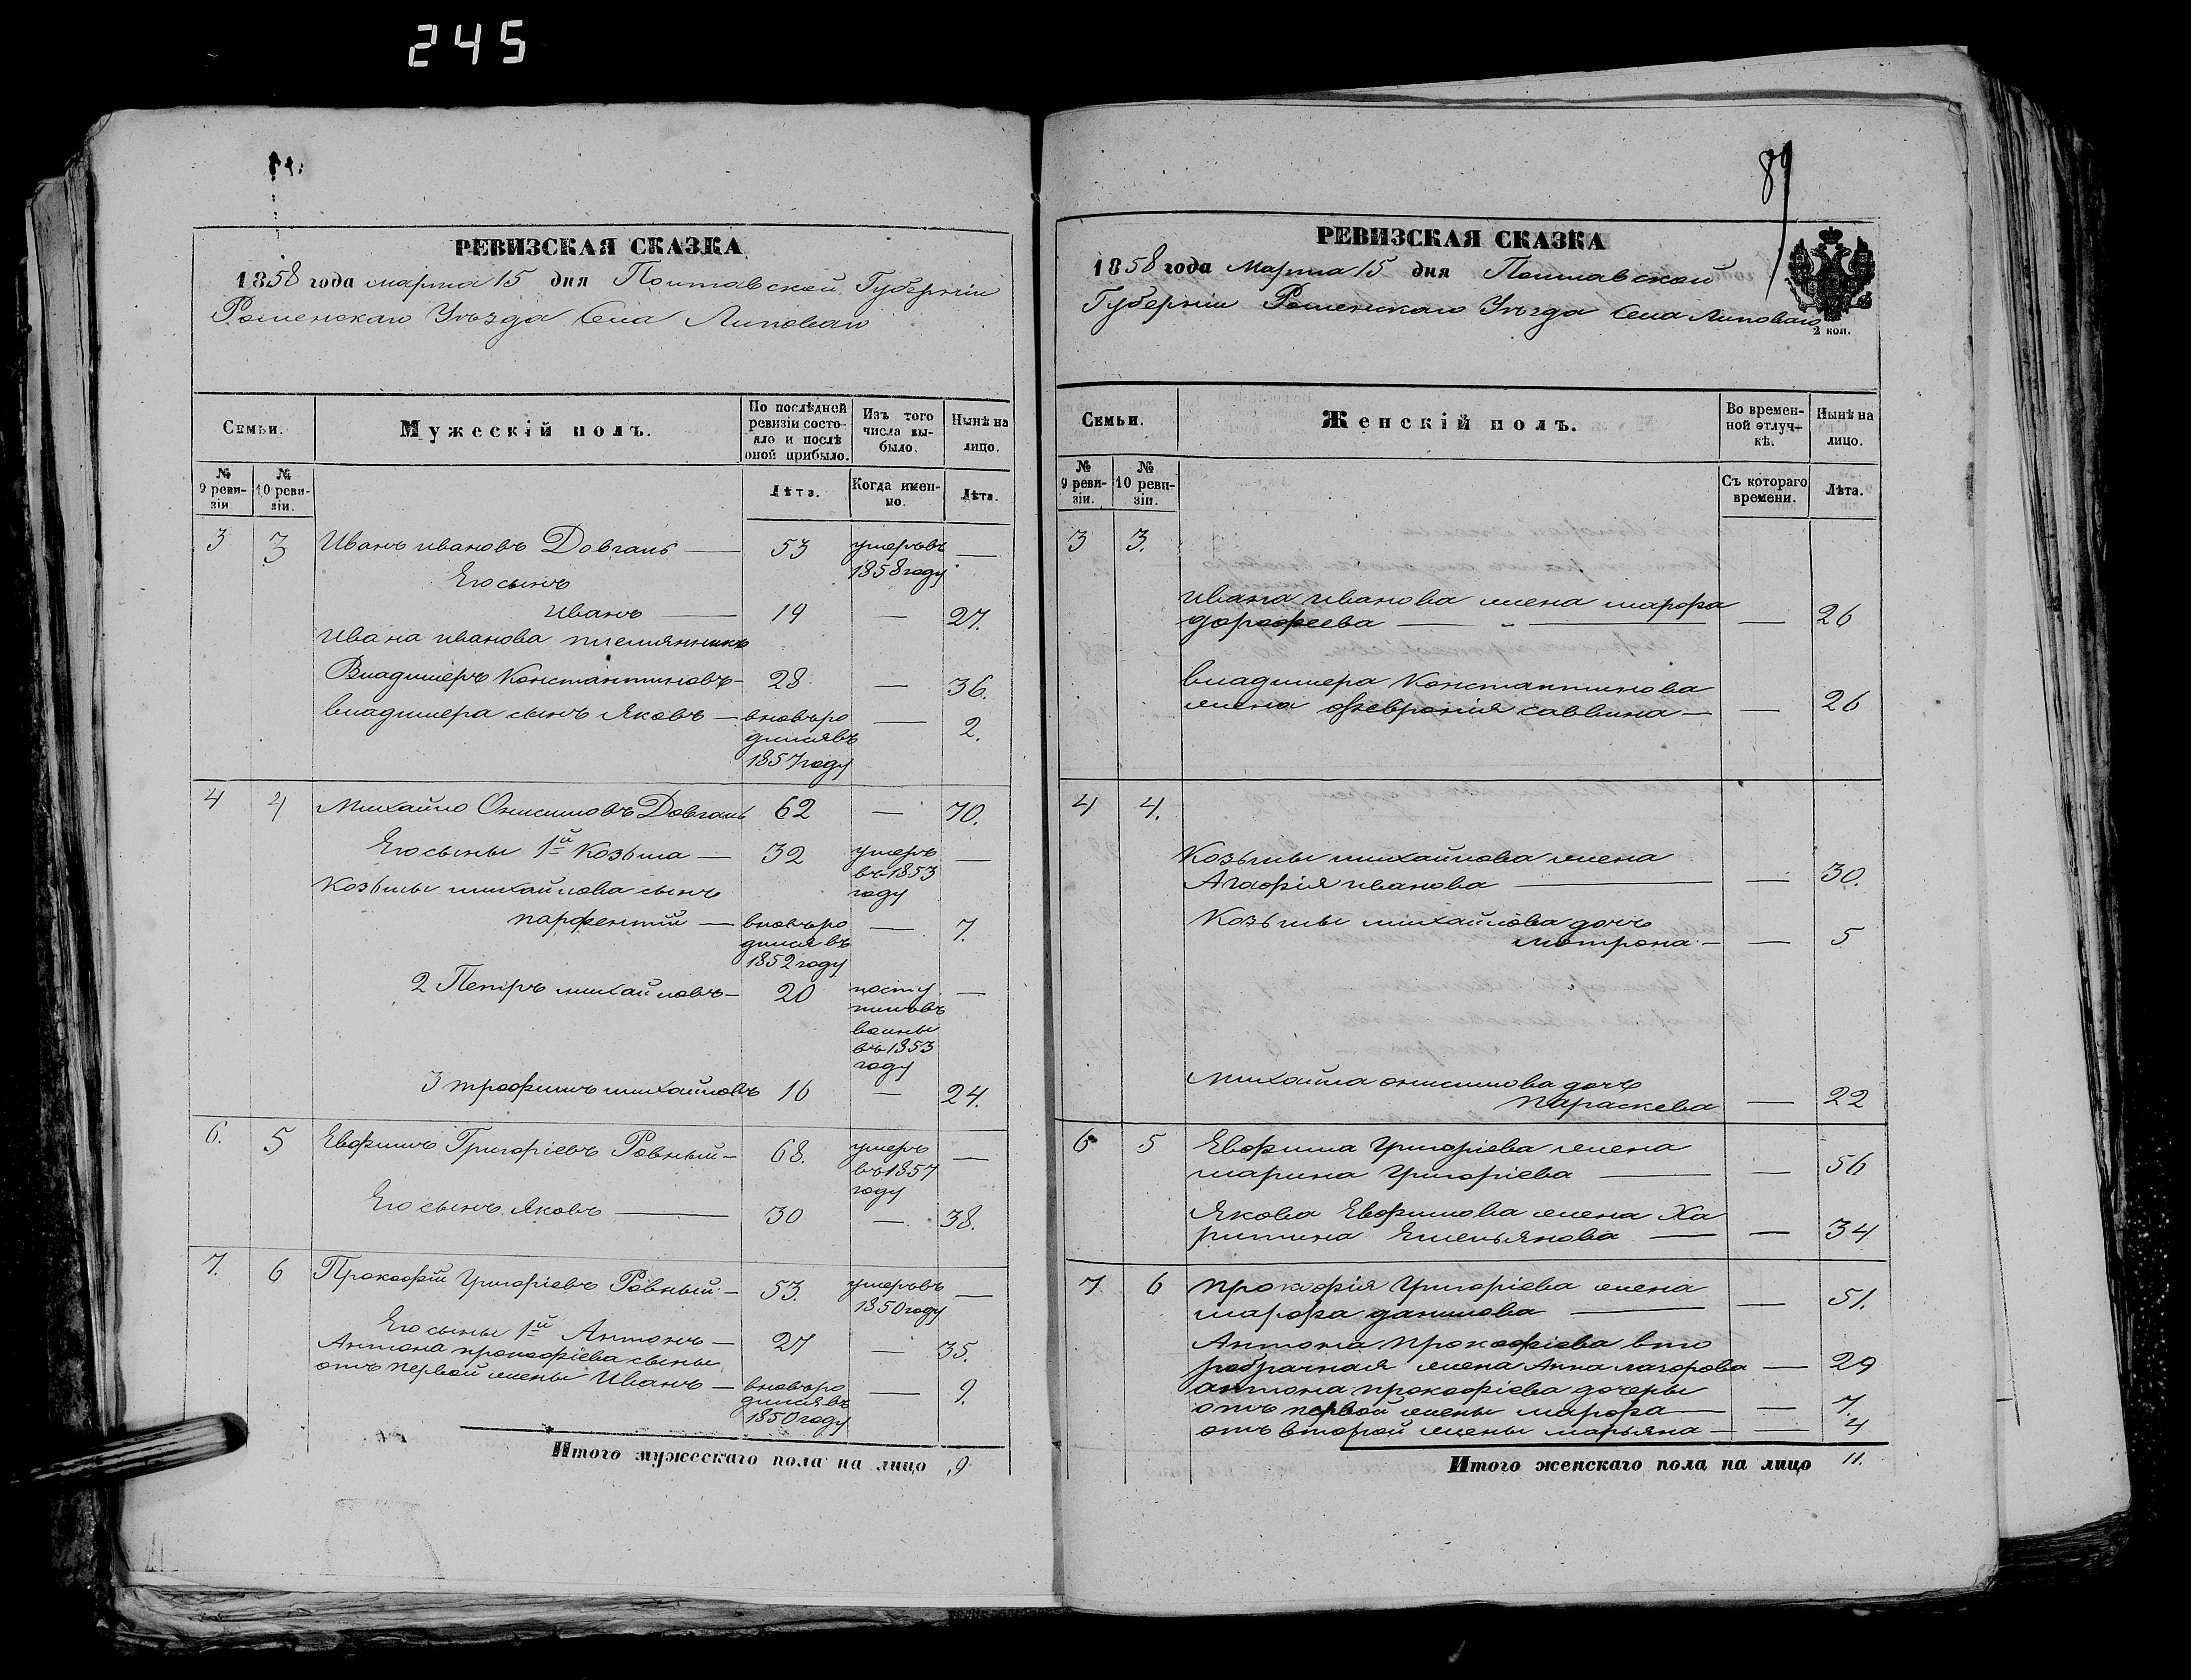 245
РЕВИЗСКАЯ СКАЗКА
1858 года марта 15 дня Полтавской Губерніи
Роменскаго Уѣзда Села Липоваго
Семьи.
Мужескій полъ.
По послѣдней ревизіи состояло и послѣ оной прибыло.
Изъ того числа выбыло.
Нынѣ на лицо.
№ 9 ревизіи
№ 10 ревизіи.
Лѣта.
Когда именно.
Лѣта.
3 3 Иванъ ивановъ Довгаль — 53 умеръ въ —
1858 году
Его сынъ
иванъ — 19 — 27.
ивана иванова племянникъ
Владимеръ Константиновъ — 28 — 36.
владимера сынъ Яковъ — вновь ро — 2.
дился въ
1857 году
4 4 Михайло Онисимовъ Довгаль 62 — 70.
Его сыны 1й Козьма — 32 умеръ —
въ 1853
Козьмы михайлова сынъ году
парфентій — вновь ро — 7.
дился въ
1852 году
2 Петръ михайловъ — 20 посту —
пилъ въ
воины
въ 1853
году
3 трофимъ михайловъ 16 — 24.
6. 5 Евфимъ Григоріевъ Ровный — 68. умеръ —
въ 1857
году
Его сынъ Яковъ — 30 — 38.
7. 6 Прокофій Григоріевъ Ровный — 53. умеръ въ —
1850 году
Его сыны 1й Антонъ — 27 — 35.
Антона прокофіева сыны
отъ первой жены Иванъ — вновь ро — 9.
дился въ
1850 году
Итого мужескаго пола на лицо 9.
89
РЕВИЗСКАЯ СКАЗКА
1858 года марта 15 дня Полтавской
Губерніи Роменскаго Уѣзда Села Липоваго
2 коп.
Семьи.
Женскій полъ.
Во временной отлучкѣ.
Нынѣ на лицо.
№ 9 ревизіи.
№ 10 ревизіи.
Съ котораго времени.
Лѣта.
3 3.
ивана иванова жена марфа
дорофеева — „ — — 26
владимера Константинова
жена февронія саввина — — 26
4 4.
Козьмы михайлова жена
Агафія иванова — — 30.
Козьмы михайлова дочь
мотрона — — 5
михайла онисимова дочь
параскева — 22
6 5 Евфима Григоріева жена
марина Григоріева — — 56
Якова Евфимова жена Ха
ритина Емельянова — — 34
7 6 прокофія Григоріева жена
марфа данилова — — 51.
Антона прокофіева вто
робрачная жена Анна — 29
антона прокофіева дочери
отъ первой жены марфа — — 7.
отъ второй жены марьяна — — 4
Итого женскаго пола на лицо 11.